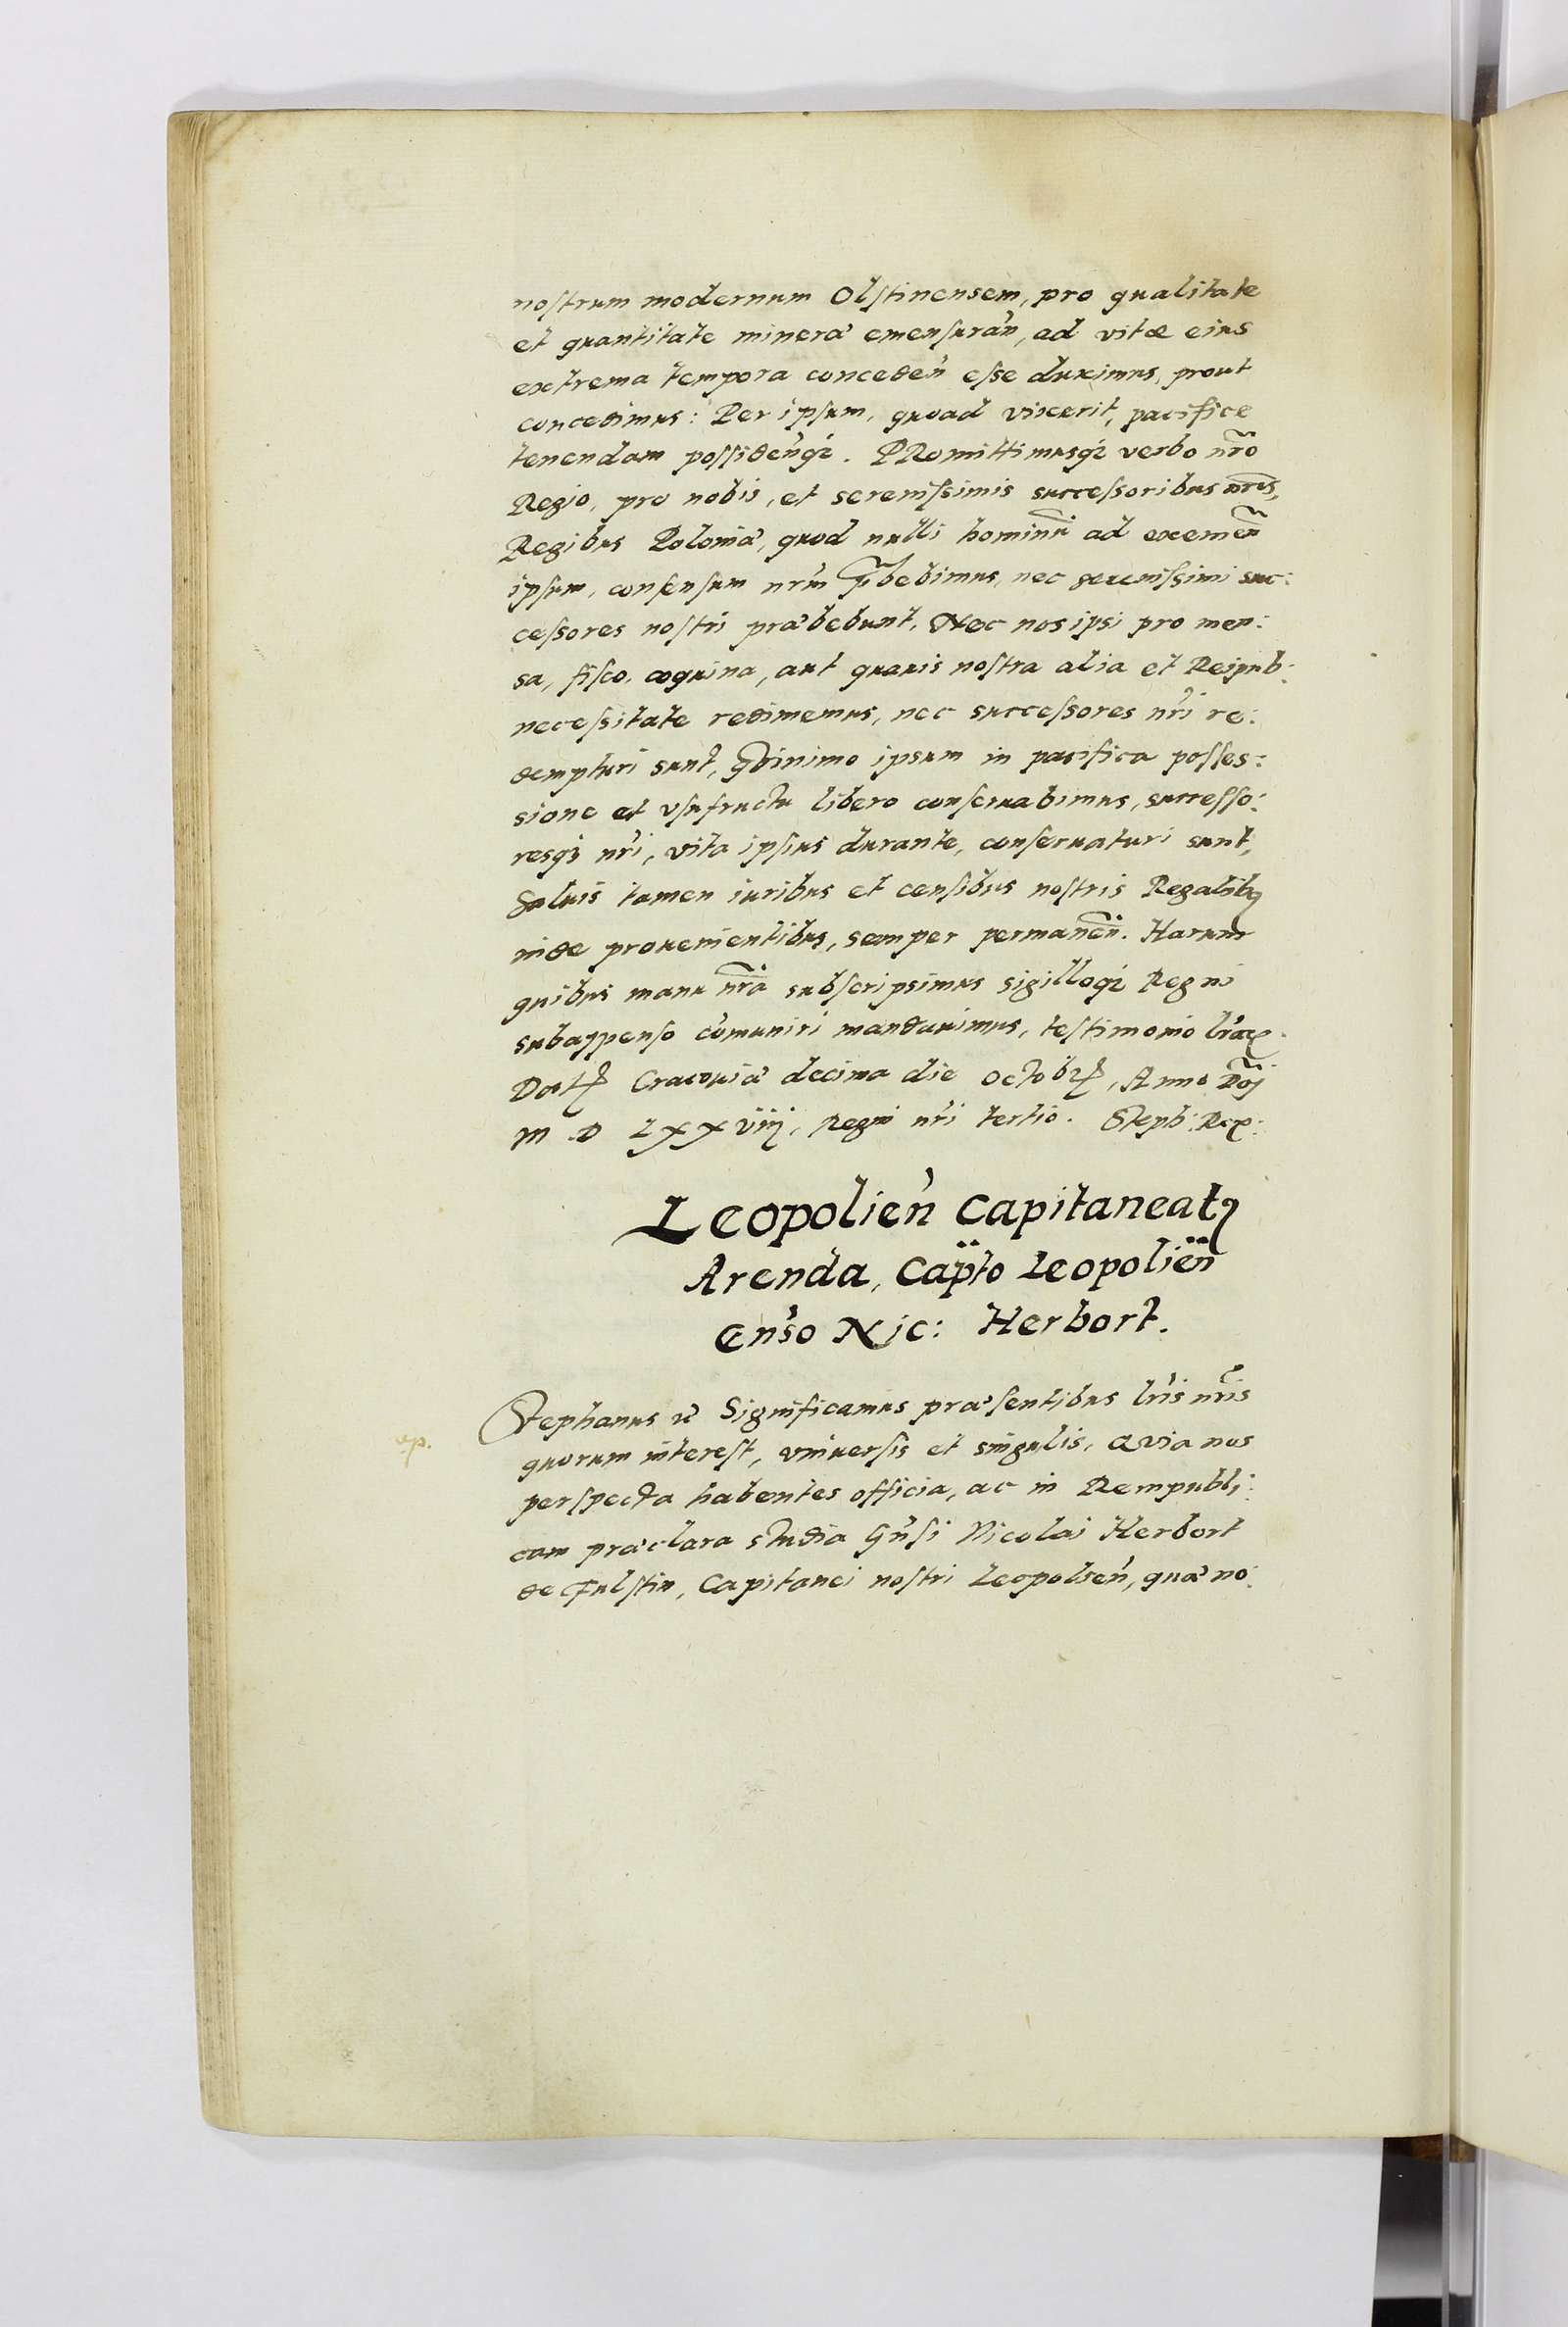 nostrum modernum Olstinensem, pro qualitate
et quantitate mineræ emensurañ, ad vitæ eius
extrema tempora conceden̄ esse duximus, prout
concedimus: Per ipsum, quoad vixerit, pacifice
tenendam possiden̄q3. PRomittimusq3 verbo nr̃o
Regio, pro nobis, et serenissimis successoribus nr̃is,
Regibus Poloniæ, quod nulli hominũ ad eximeñ
ipsum, consensum nr̃m p̃bebimus, nec serenissimi suc:
cessores nostri præbebunt, Nec nos ipsi pro men:
sa, fisco, coquina, aut quauis nostra alia et Reipub:
necessitate redimemus, nec successores nr̃i re:
dempturi sunt, Qũinimo ipsum in pacifica posses:
sione et vsufructu libero conseruabimus, successo:
resq3 nr̃i, vita ipsius durante, conseruaturi sunt,
Saluis tamen iuribus et censibus nostris Regalibꝰ
inde prouenientibus, semper permaneñ. Harum
quibus manu nr̃a subscripsimus sigilloq3 Regni
subappenso cõmuniri mandauimus, testimonio lr̃aꝝ.
Datꝭ Cracouiæ decima die Octobrꝭ, Anno Dñj
M D LXXviij, Regni nr̃i tertio. Steph: Rex:
Leopolien̄ Capitaneatꝰ
Arenda, Cap̈to Leopolien̈
Gn̄so Nic: Herbort.
Stephanus &c Significamus præsentibus lr̃is nr̃is
quorum interest, vniuersis et singulis, Quia nos
perspecta habentes officia, ac in Rempubli:
cam præclara studia Gn̄si Nicolai Herbort
de Fulstin, Capitanei nostri Leopolien̄, quæ no: